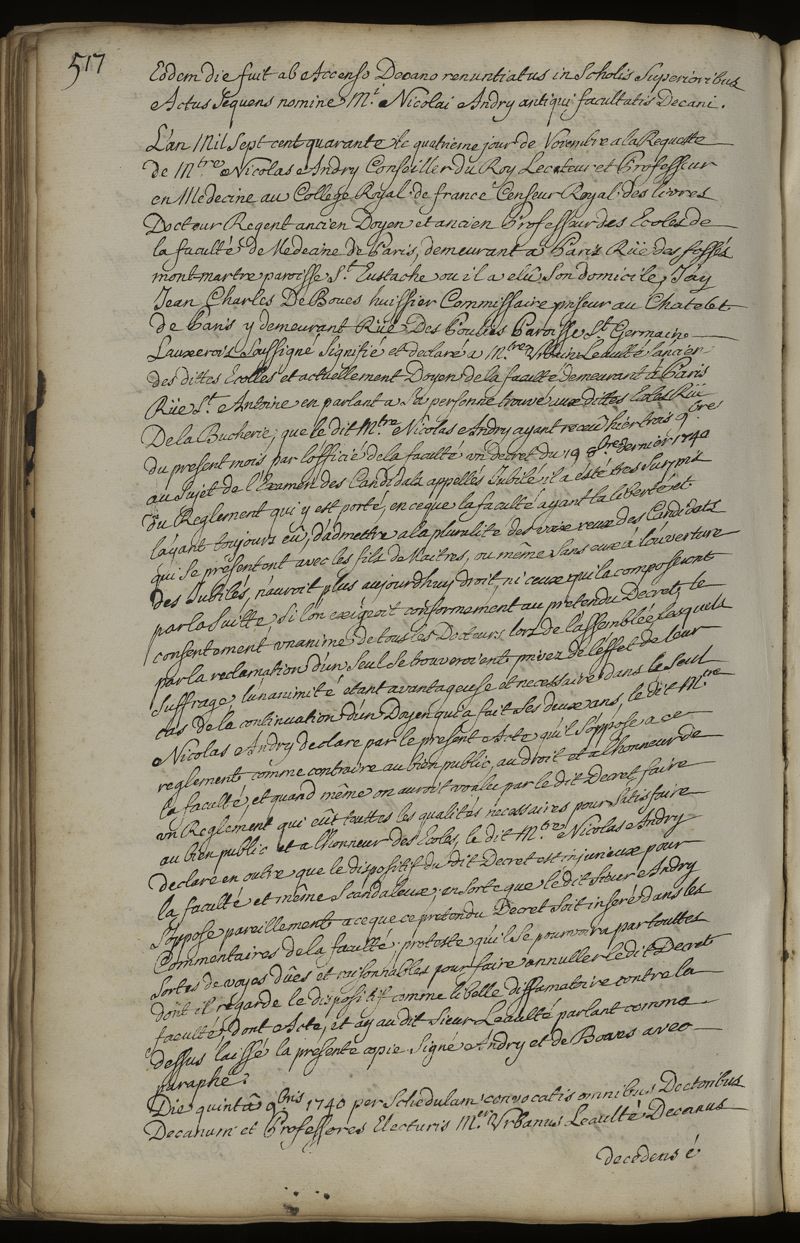 517
Eodem die fuit ab Accenso Decano renuntiatus in Scholis Superioribus
Actus Sequens nomine M.i Nicolai Andry antiqui facultatis Decani.
L'an Mil Sept cent quarante le quatrieme jour de Novembre a la Requeste
de M.tre Nicolas Andry Conseiller du Roy Lecteur et Professeur
en Medecine au College Royal de france Censeur Royal des livres
Docteur Regent ancien Doyen et ancien Professeur des Ecoles de
la faculté de Medecine de Paris, demeurant a Paris Rüe des fossés
montmartre paroisse S.t Eustache ou il a elû Son domicile, Jay
Jean Charles De Boues huissier Commissaire priseur au Chatelet
de Paris y demeurant Rüe Des Poulies Paroisse St Germain
Lauxerois Soussigné Signifié et declaré a M.tre Urbain Leaulté l'ancien
des dittes Ecolles et actuellement Doyen de la faculté demeurant à Paris
Rüe St. Antoine en parlant a Sa personne trouvé aux dittes Ecoles Rüe
De la Bucherie; que le dit M.tre Nicolas Andry ayant receu hier trois 9bre
du present mois par l'officié de la faculté un decret du 19 8bre dernier 1740
au Sujet de l'Examen des Candidats appellés Jubilé, il a été tres Surpris
du Reglement qui y est porté, en ce que la faculté ayant la liberté et
layant toujours eû, d'admettre a la pluralite des voix ceux des Candidats
qui Se presentent avec les fils de Maitres, ou même Sans eux à l'ouverture
des Jubilés, n'auroit plus aujourdhuy droit, ni ceux qui la composeront
par la Suitte, Si l'on exigeoit conformement au pretendu Decret, le
consentement unanime de tous les Docteurs lors de l'assemblée, lesquels
par la reclamation d'un Seul Se trouveroient privez de l'effet de leur
Suffrage, lunanimité etant avantageuse et necessaire dans le Seul
cas de la continuation d'un Doyen qui a fait Ses deux ans, le dit M.tre
Nicolas Andry declare par le present Acte qu'il S'oppose a ce
reglement comme contraire au bien public, au droit et a l'honneur de
la faculté, et quand même on auroit voulu par le dit Decret faire
un Reglement qui eût touttes les qualités necessaires pour Satisfaire
au bien public et a l'honneur des Ecoles, le dit M.tre Nicolas Andry
declare en outre que le dispositif du dit Decret est injurieux pour
la faculté et même Scandaleux; en Sorte que le dit Sieur Andry
S'oppose pareillement a ce que ce pretendu Decret Soit inseré dans les
Commentaires de la faculté; proteste qu'il Se pourvoira par touttes
Sortes de voyes dûes et raisonnables pour faire annuller le dit Decret
dont il regarde le dispositif comme libelle diffamatoire contre la
faculté, Dont Acte, et ay au dit Sieur Leaulté parlant comme
dessus laissé la presente copie Signé Andry et de Boues avec
paraphe.
Die quintâ 9bris 1740 per Schedulam convocatis omnibus Doctoribus
Decanum et Professores Electuris M.er Urbanus Leaulté Decanus
decedens é